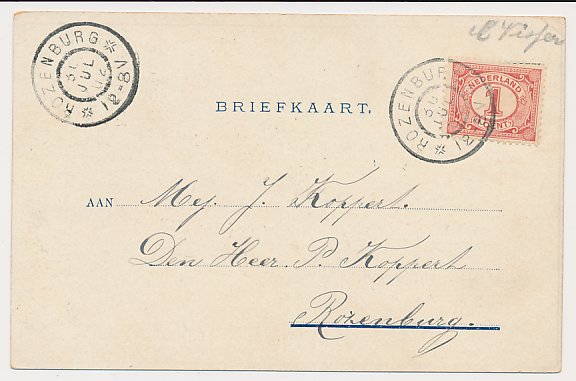 M Visser
ROZENBURG
JUL
12-8V
ROZENBURG
JUL
12
NEDERLAND
1
CENT
BRIEFKAART.
AAN Mej. J. Koppert.
Den Heer P. Koppert
Rozenburg.